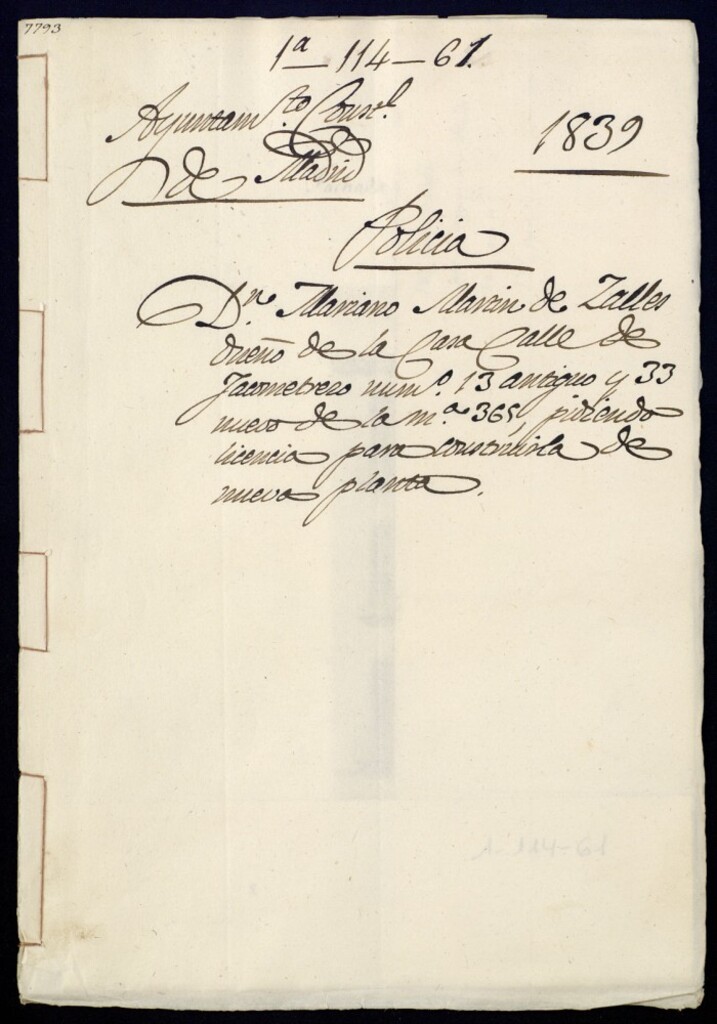 7793
1ª - 114 - 61.
Ayuntam.to Const.l
de Madrid
1839
Policia
Dn. Mariano Marin de Zalles
dueño de la Casa Calle de
Jacometrezo num.o 13 antiguo y 33
nuevo de la m.a 365, pidiendo
licencia para construirla de
nueva planta.